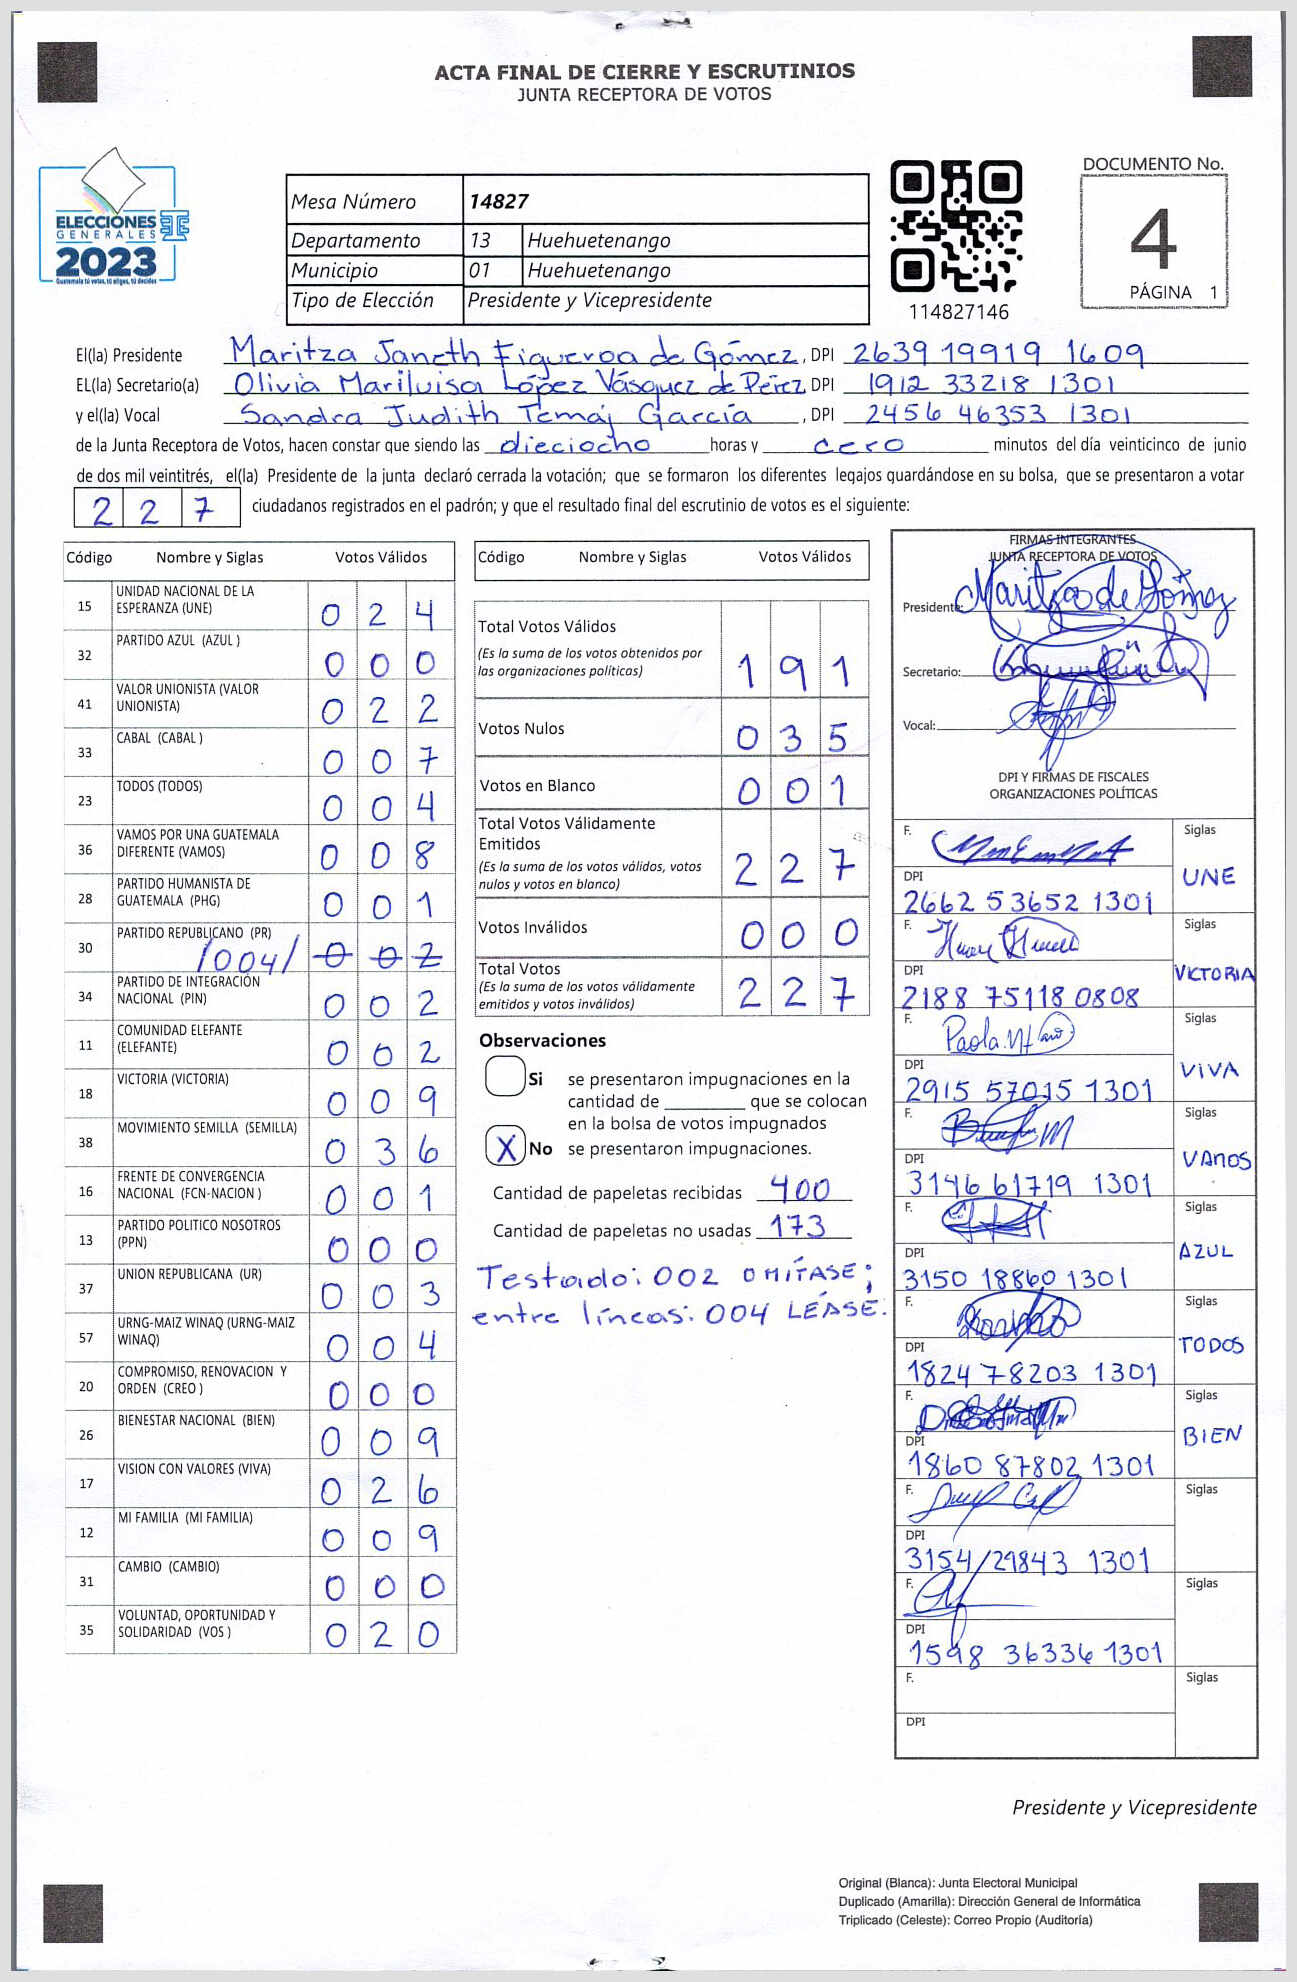 ACTA FINAL DE CIERRE Y ESCRUTINIOS
JUNTA RECEPTORA DE VOTOS
ELECCIONES
GENERALES
2023
Guatemala tú votas, tú eliges, tú decides
Mesa Número 14827
Departamento 13 Huehuetenango
Municipio 01 Huehuetenango
Tipo de Elección Presidente y Vicepresidente
114827146
DOCUMENTO No.
4
PÁGINA 1
El(la) Presidente Maritza Janeth Figueroa de Gómez, DPI 2639 19919 1609
EL(la) Secretario(a) Olivia Mariluisa López Vásquez de Pérez DPI 1912 33218 1301
y el(la) Vocal Sandra Judith Temaj García, DPI 2456 46353 1301
de la Junta Receptora de Votos, hacen constar que siendo las dieciocho horas y cero minutos del día veinticinco de junio
de dos mil veintitrés, el(la) Presidente de la junta declaró cerrada la votación; que se formaron los diferentes legajos guardándose en su bolsa, que se presentaron a votar
227 ciudadanos registrados en el padrón; y que el resultado final del escrutinio de votos es el siguiente:
Código Nombre y Siglas Votos Válidos
15 UNIDAD NACIONAL DE LA ESPERANZA (UNE) 024
32 PARTIDO AZUL (AZUL ) 000
41 VALOR UNIONISTA (VALOR UNIONISTA) 022
33 CABAL (CABAL ) 007
23 TODOS (TODOS) 004
36 VAMOS POR UNA GUATEMALA DIFERENTE (VAMOS) 008
28 PARTIDO HUMANISTA DE GUATEMALA (PHG) 001
30 PARTIDO REPUBLICANO (PR) /004/ 002
34 PARTIDO DE INTEGRACIÓN NACIONAL (PIN) 002
11 COMUNIDAD ELEFANTE (ELEFANTE) 002
18 VICTORIA (VICTORIA) 009
38 MOVIMIENTO SEMILLA (SEMILLA) 036
16 FRENTE DE CONVERGENCIA NACIONAL (FCN-NACION ) 001
13 PARTIDO POLITICO NOSOTROS (PPN) 000
37 UNION REPUBLICANA (UR) 003
57 URNG-MAIZ WINAQ (URNG-MAIZ WINAQ) 004
20 COMPROMISO, RENOVACION Y ORDEN (CREO ) 000
26 BIENESTAR NACIONAL (BIEN) 009
17 VISION CON VALORES (VIVA) 026
12 MI FAMILIA (MI FAMILIA) 009
31 CAMBIO (CAMBIO) 000
35 VOLUNTAD, OPORTUNIDAD Y SOLIDARIDAD (VOS ) 020
Código Nombre y Siglas Votos Válidos
Total Votos Válidos 191
(Es la suma de los votos obtenidos por
las organizaciones políticas)
Votos Nulos 035
Votos en Blanco 001
Total Votos Válidamente
Emitidos 227
(Es la suma de los votos válidos, votos
nulos y votos en blanco)
Votos Inválidos 000
Total Votos 227
(Es la suma de los votos válidamente
emitidos y votos inválidos)
Observaciones
Si se presentaron impugnaciones en la
cantidad de ________ que se colocan
en la bolsa de votos impugnados
X No se presentaron impugnaciones.
Cantidad de papeletas recibidas 400
Cantidad de papeletas no usadas 173
Testado: 002 OMÍTASE;
entre líneas: 004 LEASE.
FIRMAS INTEGRANTES
JUNTA RECEPTORA DE VOTOS
Presidente: Maritza de Gómez
Secretario:
Vocal:
DPI Y FIRMAS DE FISCALES
ORGANIZACIONES POLÍTICAS
F. Siglas
DPI UNE
2662 53652 1301
F. Siglas
DPI VICTORIA
2188 75118 0808
F. Paola Siglas
DPI VIVA
2915 57015 1301
F. Siglas
DPI VAMOS
3146 61719 1301
F. Siglas
DPI AZUL
3150 18860 1301
F. Siglas
DPI TODOS
1824 78203 1301
F. Siglas
DPI BIEN
1860 87802 1301
F. Siglas
DPI
3154/29843 1301
F. Siglas
DPI
1598 36336 1301
F. Siglas
DPI
Presidente y Vicepresidente
Original (Blanca): Junta Electoral Municipal
Duplicado (Amarilla): Dirección General de Informática
Triplicado (Celeste): Correo Propio (Auditoría)